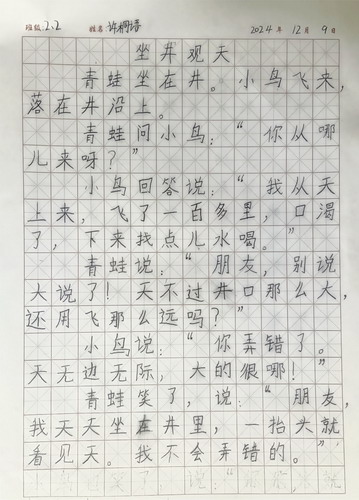 班级 2.2 姓名 2024年 12月 9日
坐井观天
青蛙坐在井。小鸟飞来,
落在井沿上。
青蛙问小鸟:“你从哪
儿来呀?”
小鸟回答说:“我从天
上来,飞了一百多里,口渴
了,下来找点儿水喝。”
青蛙说:“朋友,别说
大说了!天不过井口那么大,
还用飞那么远吗?”
小鸟说:“你弄错了。
天无边无际,大的很哪!”
青蛙笑了,说:“朋友,
我天天坐在井里,一抬头就
看见天。我不会弄错的。”